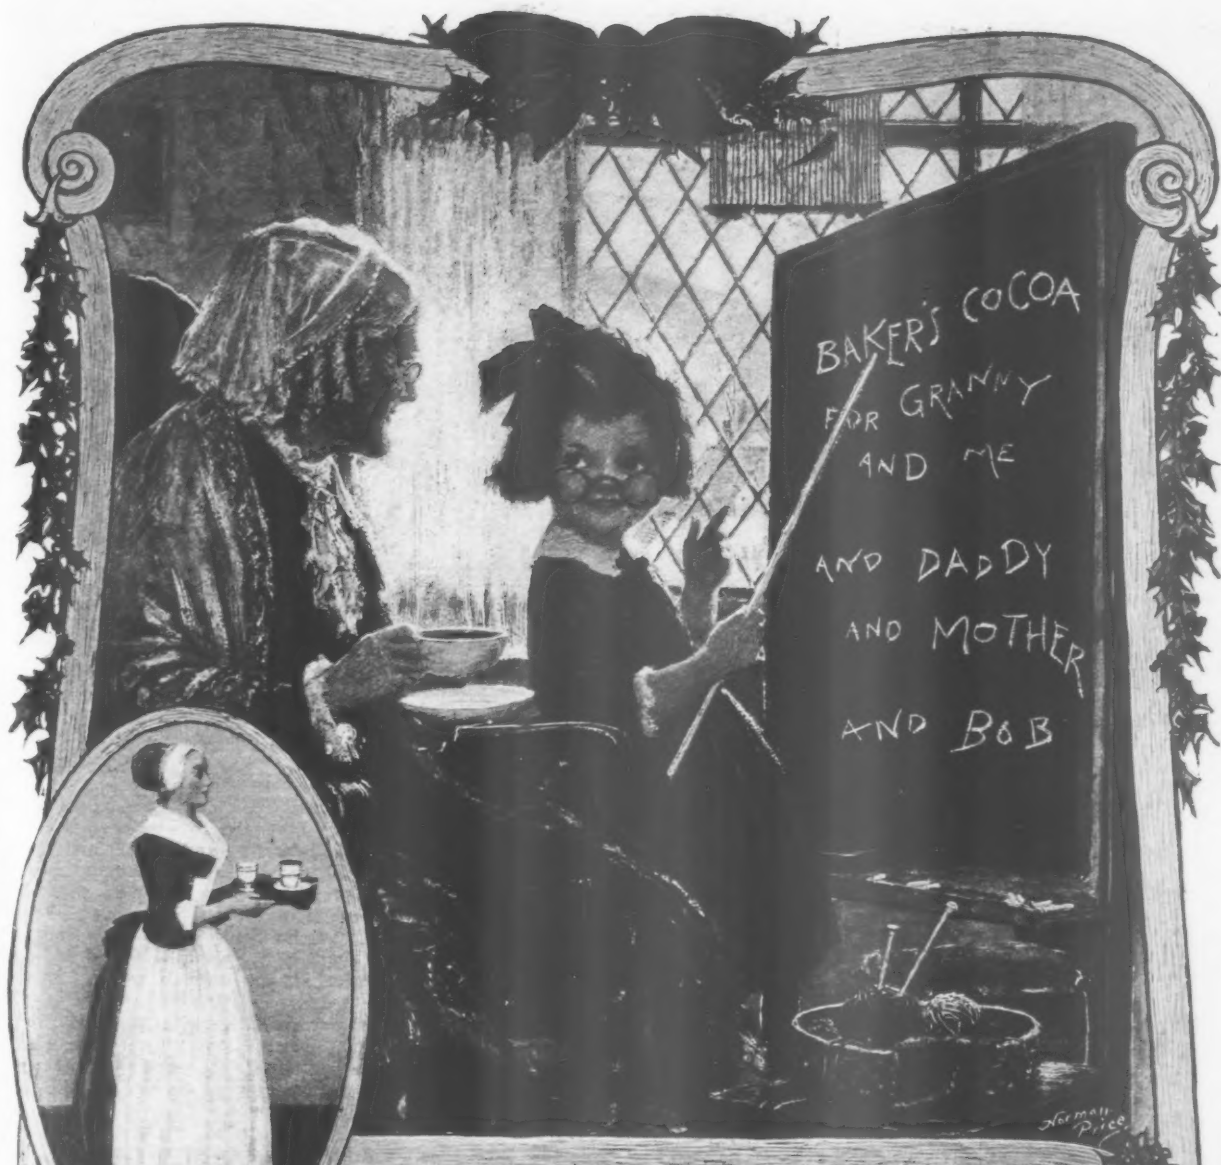 BAKER'S COCOA
FOR GRANNY
AND ME
AND DADDY
AND MOTHER
AND BOB
Norman
Price